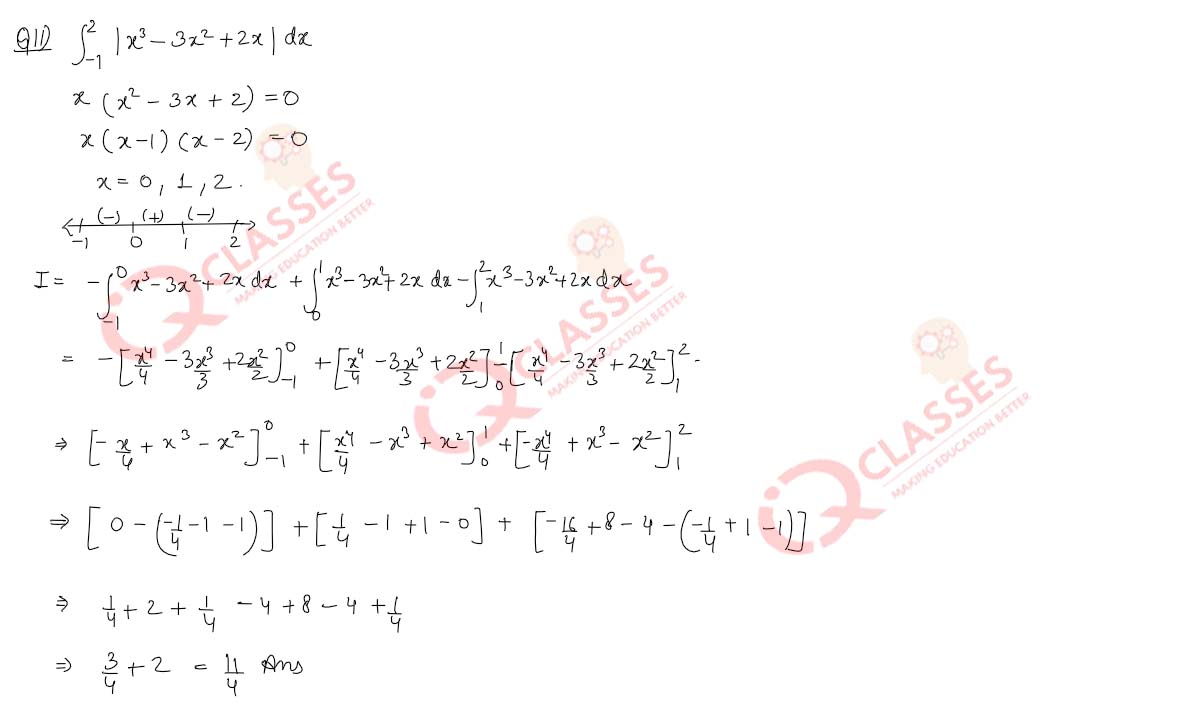 Q11) ∫₋₁² |x³ − 3x² + 2x| dx
x (x² − 3x + 2) = 0
x (x−1) (x − 2) = 0
x = 0, 1, 2.
(−) (+) (−)
−1 0 1 2
I = −∫₋₁⁰ x³ − 3x² + 2x dx + ∫₀¹ x³ − 3x² + 2x dx − ∫₁² x³ − 3x² + 2x dx
= −[x⁴/4 − 3x³/3 + 2x²/2]₋₁⁰ + [x⁴/4 − 3x³/3 + 2x²/2]₀¹ − [x⁴/4 − 3x³/3 + 2x²/2]₁² -
⇒ [−x/4 + x³ − x²]₋₁⁰ + [x⁴/4 − x³ + x²]₀¹ + [−x⁴/4 + x³ − x²]₁²
⇒ [0 − (−1/4 − 1 − 1)] + [1/4 − 1 + 1 − 0] + [−16/4 + 8 − 4 − (−1/4 + 1 − 1)]
⇒ 1/4 + 2 + 1/4 − 4 + 8 − 4 + 1/4
⇒ 3/4 + 2 = 11/4 Ans
iQ CLASSES
MAKING EDUCATION BETTER
iQ CLASSES
MAKING EDUCATION BETTER
iQ CLASSES
MAKING EDUCATION BETTER